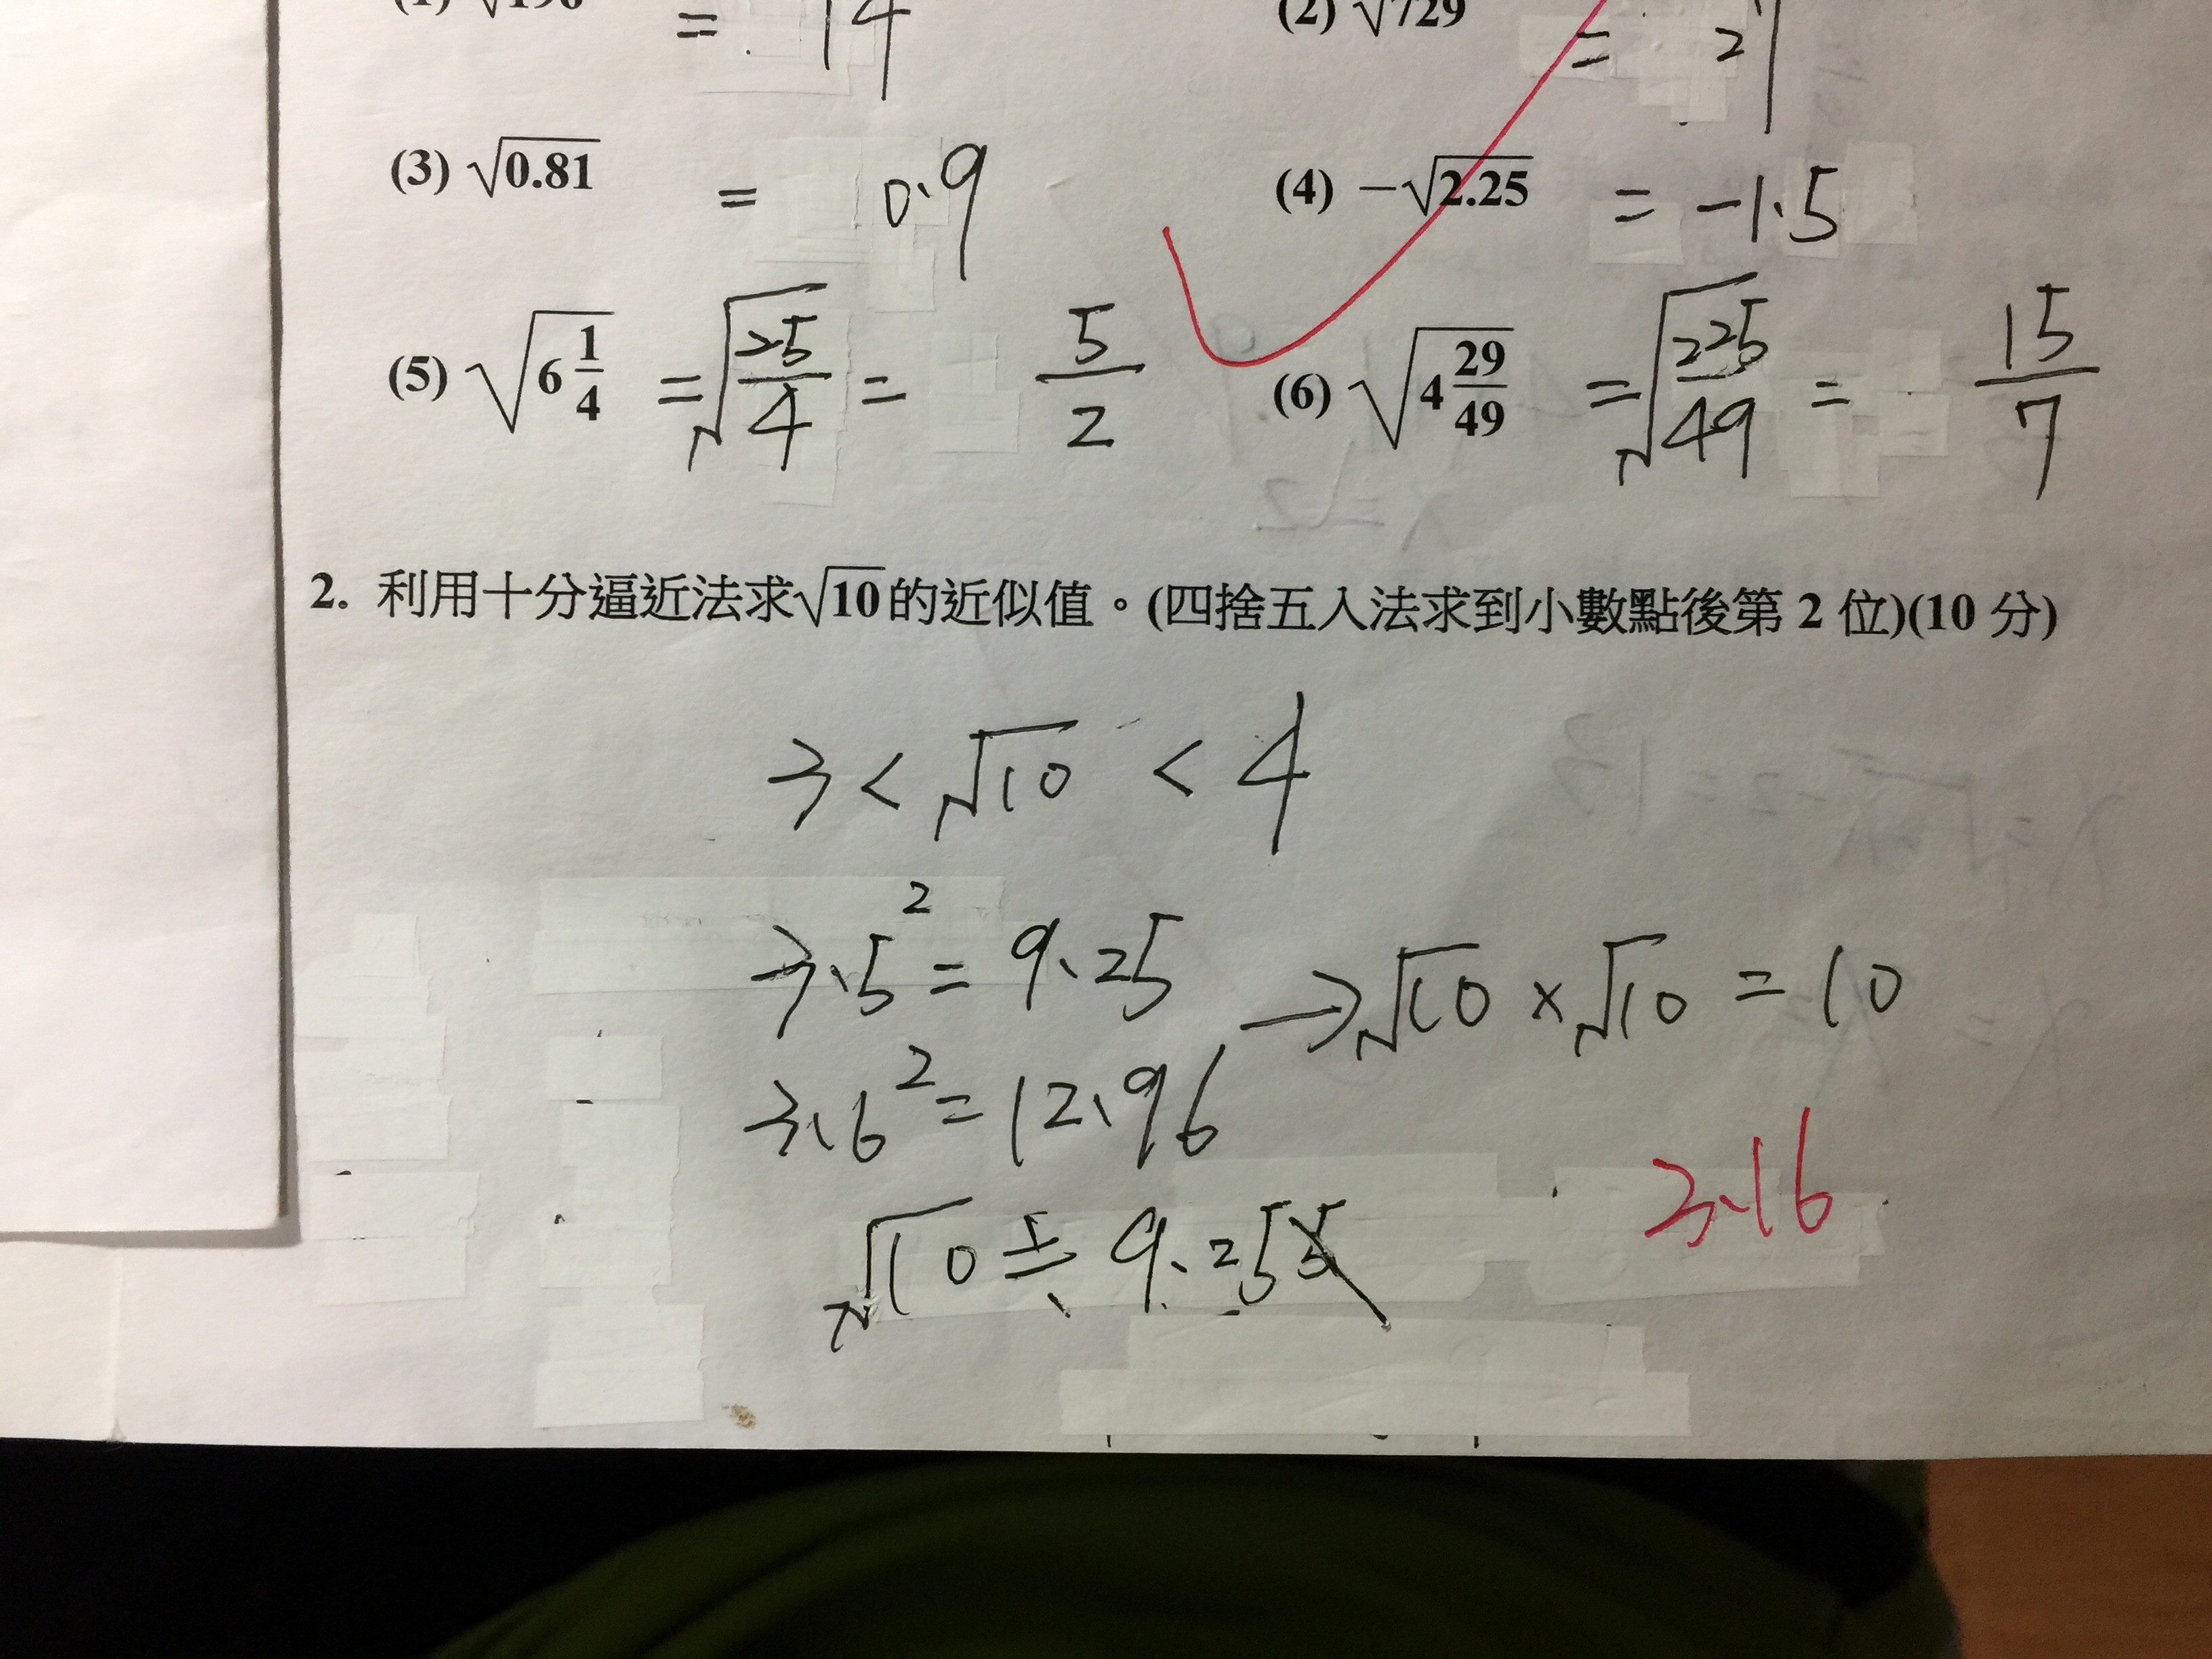 (1) √196 = 14 (2) √729 = 27
(3) √0.81 = 0.9 (4) −√2.25 = −1.5
(5) √6 1/4 = √25/4 = 5/2 (6) √4 29/49 = √225/49 = 15/7
2. 利用十分逼近法求√10的近似值。(四捨五入法求到小數點後第 2 位)(10 分)
3 < √10 < 4
3.5² = 9.25 → √10 × √10 = 10
3.6² = 12.96
3.16
√10 ≒ 9.25